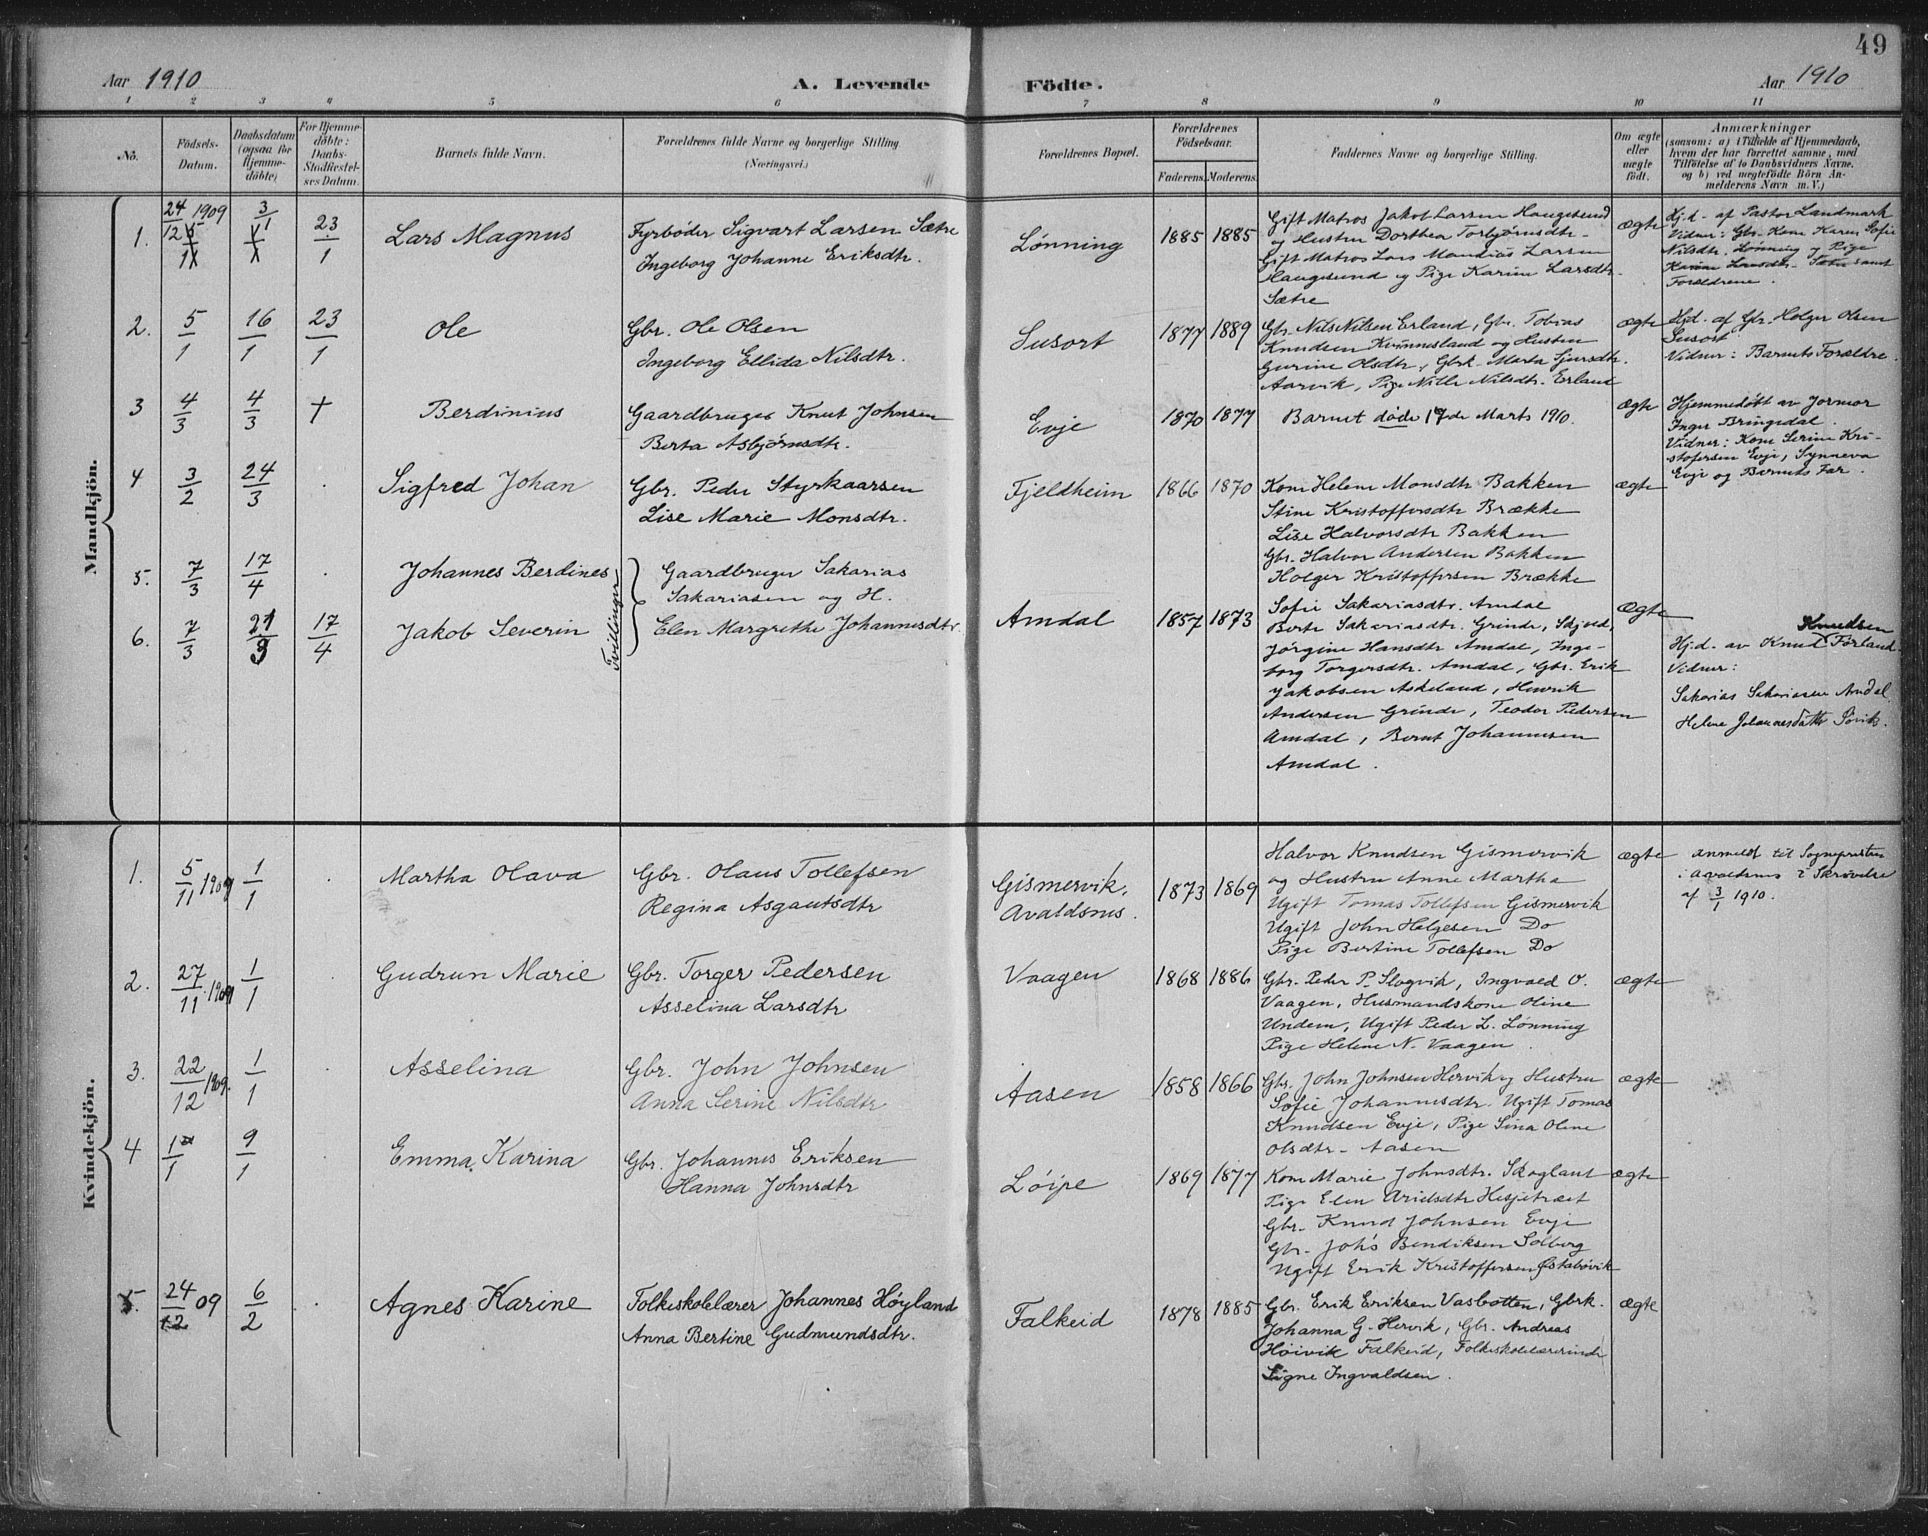 49
Aar 1910
A. Levende Födte.
Aar 1910
1 2 3 4 5 6 7 8 9 10 11
No.
Födsels-
Datum.
Daabsdatum
(ogsaa for
Hjemme-
döbte)
For Hjemme-
döbte:
Daabs-
Stadfæstel-
ses Datum.
Barnets fulde Navn.
Forældrenes fulde Navne og borgerlige Stilling
(Næringsvei.)
Forældrenes Bopæl.
Forældrenes
Födselsaar.
Faderens. Moderens.
Faddernes Navne og borgerlige Stilling.
Om ægte
eller
uægte
födt.
Anmærkninger
(saasom: a) i Tilfælde af Hjemmedaab,
hvem der har forrettet samme, med
Tilföielse af to Daabsvidners Navne,
og b) ved uægtefödte Börn An-
melderens Navn m. V.)
Mandkjön.
1. 24/12 1909 3/1 23/1 Lars Magnus
Fyrbøder Sigvart Larsen Sætre
Ingeborg Johanne Eriksdtr.
Lønning 1885 1885
Gift Matros Jakob Larsen Haugesund
og Hustru Dorthea Torbjørnsdtr-
Gift Matros Lars Mandius Larsen
Haugesund og Pige Karine Larsdtr.
Sætre
ægte
Hj.d. af Pastor Landmark
Vidner: Gbr. Kone Karen Sofie
Nilsdtr. Lønning og Pige
Karine Larsdtr. Sætre samt
Forældrene.
2. 5/1 16/1 23/1 Ole
Gbr. Ole Olsen
Ingeborg Ellida Nilsdtr.
Susort 1877 1889
Gbr. Nils Nilsen Erland, Gbr. Tobias
Knudsen Kvinnesland og Hustru
Gurine Olsdtr., Gbrk. Marta Sjursdtr.
Aarvik, Pige Nille Nilsdtr. Erland
ægte
Hjd. af Gbr. Holger Olsen
Susort
Vidner: Barnets Forældre.
3 4/3 4/3 † Berdinius
Gaardbruger Knut Johnsen
Berta Asbjørnsdtr.
Evje 1870 1877
Barnet døde 17de Marts 1910.
ægte
Hjemmedøbt av Jormor
Inger Bringedal.
Vidner: Kone Serine Kri-
stofersen Evje, Synneva
Evje og Barnets Far.
4 3/2 24/3 . Sigfred Johan
Gbr. Peder Styrkaarsen
Lise Marie Monsdtr.
Fjeldheim 1866 1870
Kone Helene Monsdtr Bakken
Stine Kristoffersdtr Brække
Lise Halvorsdtr Bakken
Gbr. Halvor Andersen Bakken
Holger Kristoffersen Brække
ægte
5. 7/3 17/4 . Johannes Berdines
6. 7/3 21/3 17/4 Jakob Severin
Tvillinger
Gaardbruger Sakarias
Sakariasen og H.
Elen Margrethe Johannesdtr.
Amdal 1857 1873
Sofie Sakariasdtr. Amdal
Berte Sakariasdtr. Grinde, Skjold,
Jørgine Hansdtr Amdal, Inge-
borg Torgersdtr. Amdal, Gbr. Erik
Jakobsen Askeland, Henrik
Andersen Grinde, Teodor Pedersen
Amdal, Bernt Johannesen
Amdal.
ægte
Knudsen
Hj.d. av Knud Førland.
Vidner:
Sakarias Sakariasen Amdal
Helene Johannesdatter
Kvindekjön.
1. 5/11 1909 1/1 . Martha Olava
Gbr. Olaus Tollefsen
Regina Asgautsdtr
Gismervik,
Avaldsnes. 1873 1869
Halvor Knudsen Gismervik
og Hustru Anne Martha
Ugift Tomas Tollefsen Gismervik
Ugift John Helgesen Do
Pige Bertine Tollefsen Do
ægte
anmeldt til Sognepresten
i Avaldsnes i Skrivelse
af 3/1 1910.
2. 27/11 1909 1/1 . Gudrun Marie
Gbr. Torger Pedersen
Asselina Larsdtr
Vaagen 1868 1886
Gbr. Peder P. Slogvik, Ingvald O.
Vaagen, Husmandskone Oline
Undem, Ugift Peder L. Lønning
Pige Helene N. Vaagen.
ægte
3. 22/12 1909. 1/1 . Asselina
Gbr. John Johnsen
Anna Serine Nilsdtr
Aasen 1858 1866
Gbr. John Johnsen Hervik og Hustru
Sofie Johannesdtr. Ugift Tomas
Knudsen Evje, Pige Sina Oline
Olsdtr. Aasen
ægte
4 1/1 9/1 . Emma Karina
Gbr. Johannes Eriksen
Hanna Johnsdtr
Løipe 1869 1877
Kone Marie Johnsdtr. Skoglant
Pige Elen Hesjetræet
Gbr. Knud Johnsen Evje
Gbr. Johs Bendiksen Solberg
Ugift Erik Kristoffersen Østabøvik
ægte
5. 24/12 09 6/2 . Agnes Karine
Folkeskolelærer Johannes Høyland
Anna Bertine Gudmundsdtr.
Falkeid 1878 1885
Gbr. Erik Eriksen Vasbotten, Gbrk.
Johanna G. Hervik, Gbr. Andreas
Høivik Falkeid, Folkeskolelærerinde
Signe Ingvaldsen.
ægte